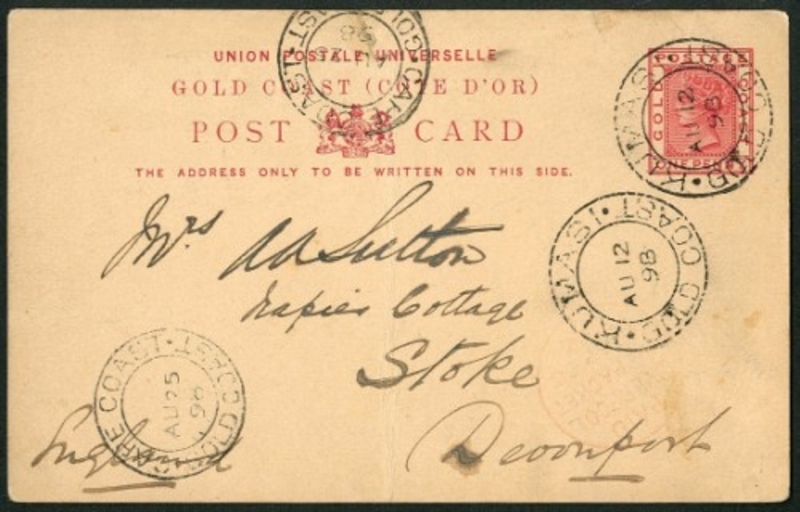 UNION POSTALE UNIVERSELLE
GOLD COAST (CÔTE D'OR)
POST CARD
THE ADDRESS ONLY TO BE WRITTEN ON THIS SIDE.
POSTAGE
GOLD COAST
ONE PENNY
KUMASI · GOLD COAST ·
AU 12
98
Mrs AA Sutton
Napier Cottage
Stoke
Devonport
England
KUMASI · GOLD COAST ·
AU 12
98
CAPE COAST · GOLD COAST ·
AU 25
98
CAPE COAST · GOLD COAST
98